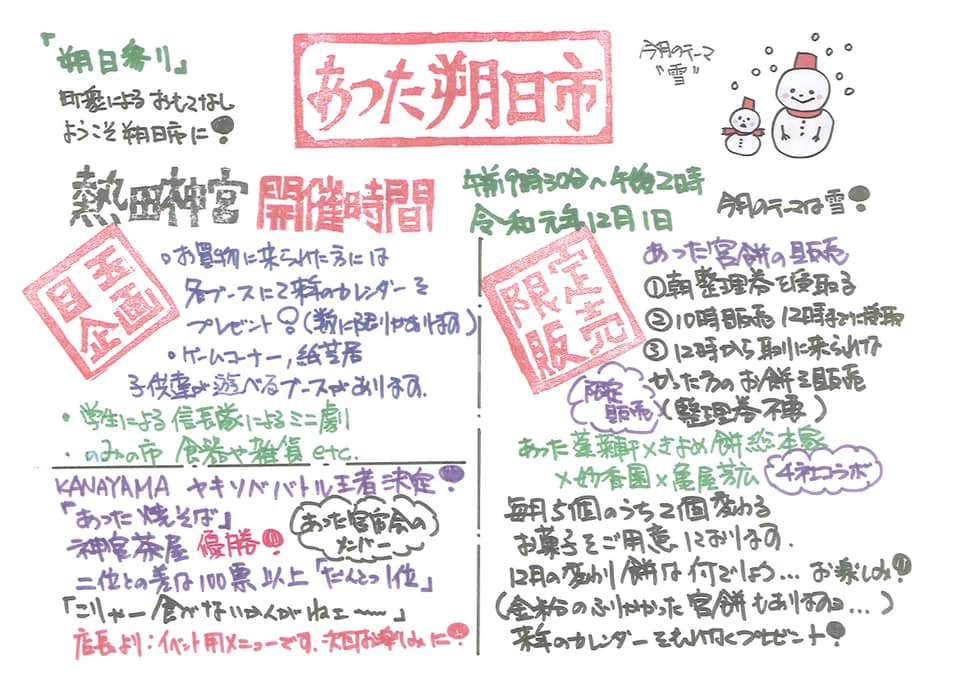 「朔日参り」
町衆によるおもてなし
ようこそ朔日市に!
あった朔日市
今月のテーマ
"雪"
熱田神宮 開催時間
午前9時30分〜午後2時
令和元年12月1日
今月のテーマは雪!
目玉企画
・お買物に来られた方には
各ブースにて来年のカレンダーを
プレゼント!(数に限りがあります)
・ゲームコーナー,紙芝居
子供達が遊べるブースがあります.
・学生による信長隊によるミニ劇
・のみの市 食器や雑貨 etc.
KANAYAMA ヤキソババトル王者決定!
「あった焼そば」
神宮茶屋 優勝!!
あった宮宿会の
メンバー
二位との差は100票以上「だんとつ1位」
「こりゃー食がないかんがねェ〜〜」
店長より:イベント用メニューです.次回お楽しみに!!
限定販売
あった宮餅の販売
①朝整理券を受取る
②10時販売 12時までに受取
③12時から取りに来られな
かった方のお餅を販売
(整理券不要)
限定
販売
あった蓬莱軒×きよめ餅総本家
×妙香園×亀屋芳広
4社コラボ
毎月5個のうち2個変わる
お菓子をご用意しております.
12月の変わり餅は何でしょう…お楽しみ!!
(金粉のふりかかった宮餅もありますョ…)
来年のカレンダーをもれなくプレゼント!